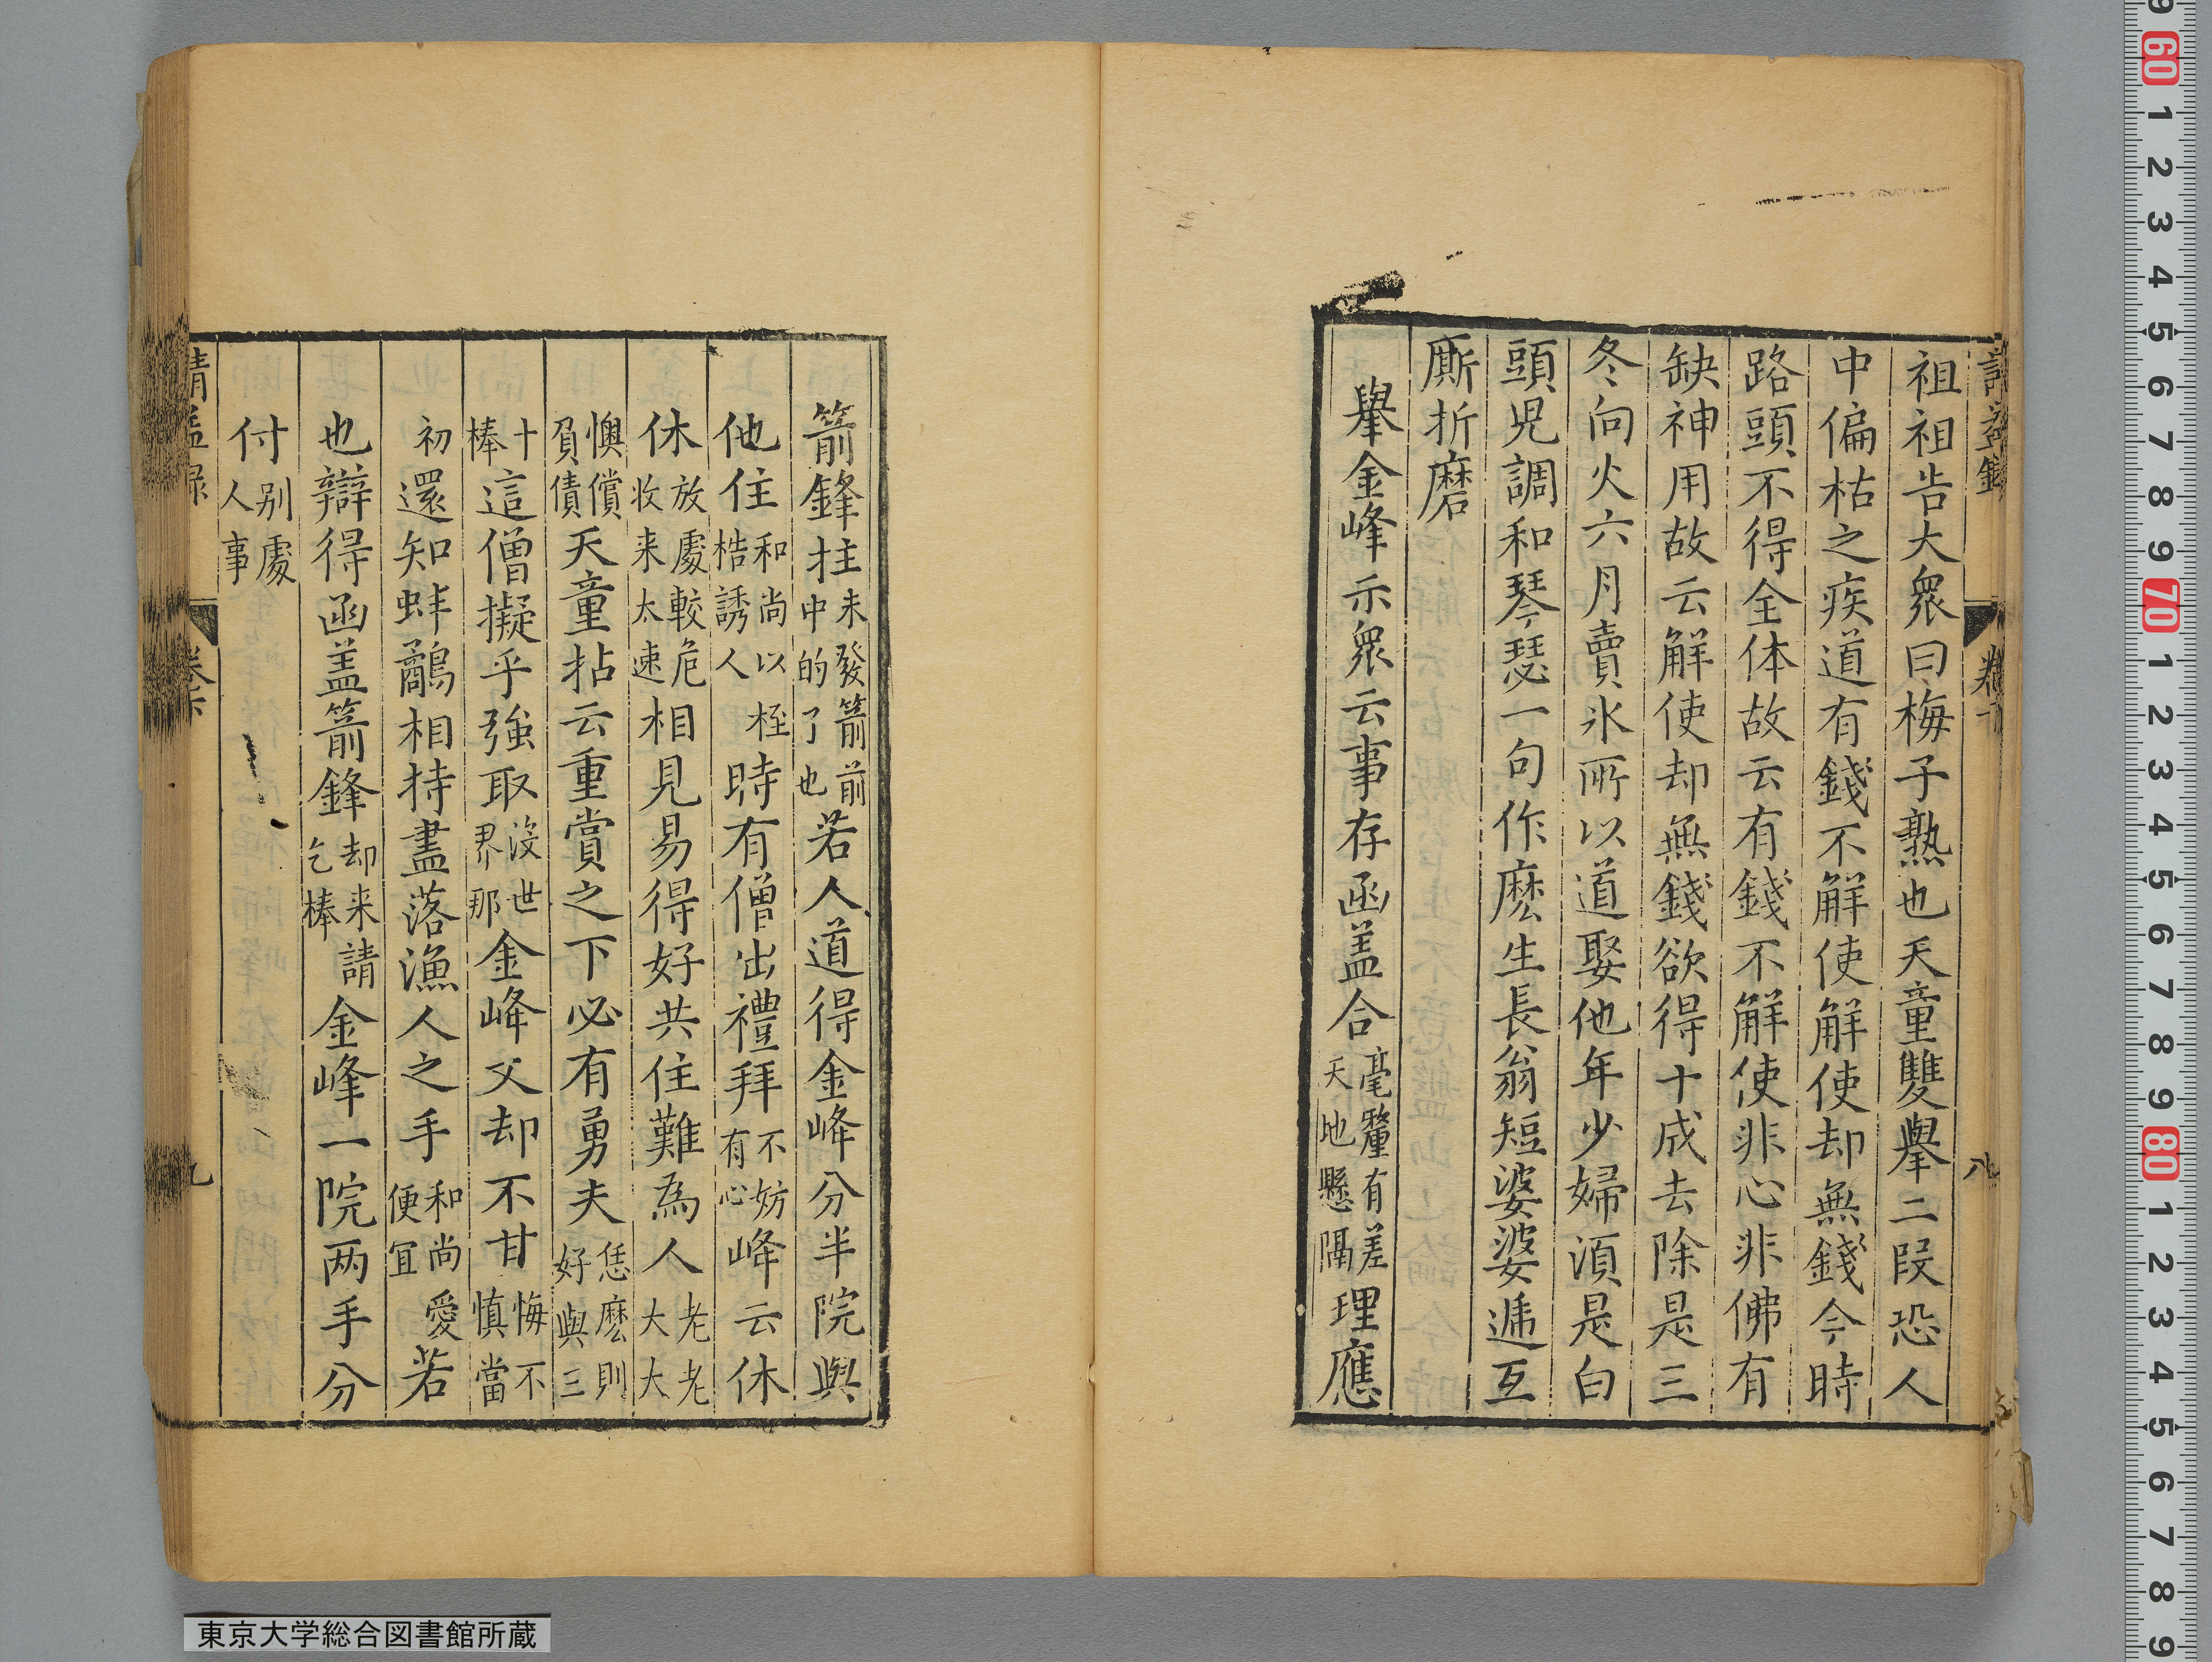 祖祖告大衆曰梅子熟也天童雙舉二段恐人
中偏枯之疾道有錢不解使解使却無錢今時
路頭不得全体故云有錢不解使非心非佛有
缺神用故云解使却無錢欲得十成去除是三
冬向火六月賣氷所以道娶他年少婦須是白
頭児調和琴瑟一句作麽生長翁短婆婆逓互
厮折磨
舉金峰示衆云事存函盖合毫釐有差天地懸隔理應
箭鋒拄未發箭前中的了也若人道得金峰分半院與
他住和尚以桎梏誘人時有僧出禮拜不妨有心峰云休
休放處較危收来太速相見易得好共住難為人老老大大
懊償負債天童拈云重賞之下必有勇夫恁麽則好與三
十棒這僧擬乎強取没世界那金峰父却不甘悔不慎當
初還知蚌鷸相持盡落漁人之手和尚愛便冝若
也辯得函盖箭鋒却来請乞棒金峰一院两手分
付别處人事
請益録
卷下
八
九
60 1 2 3 4 5 6 7 8 9 70 1 2 3 4 5 6 7 8 9 80 1 2 3 4 5 6 7 8 9
東京大学総合図書館所蔵